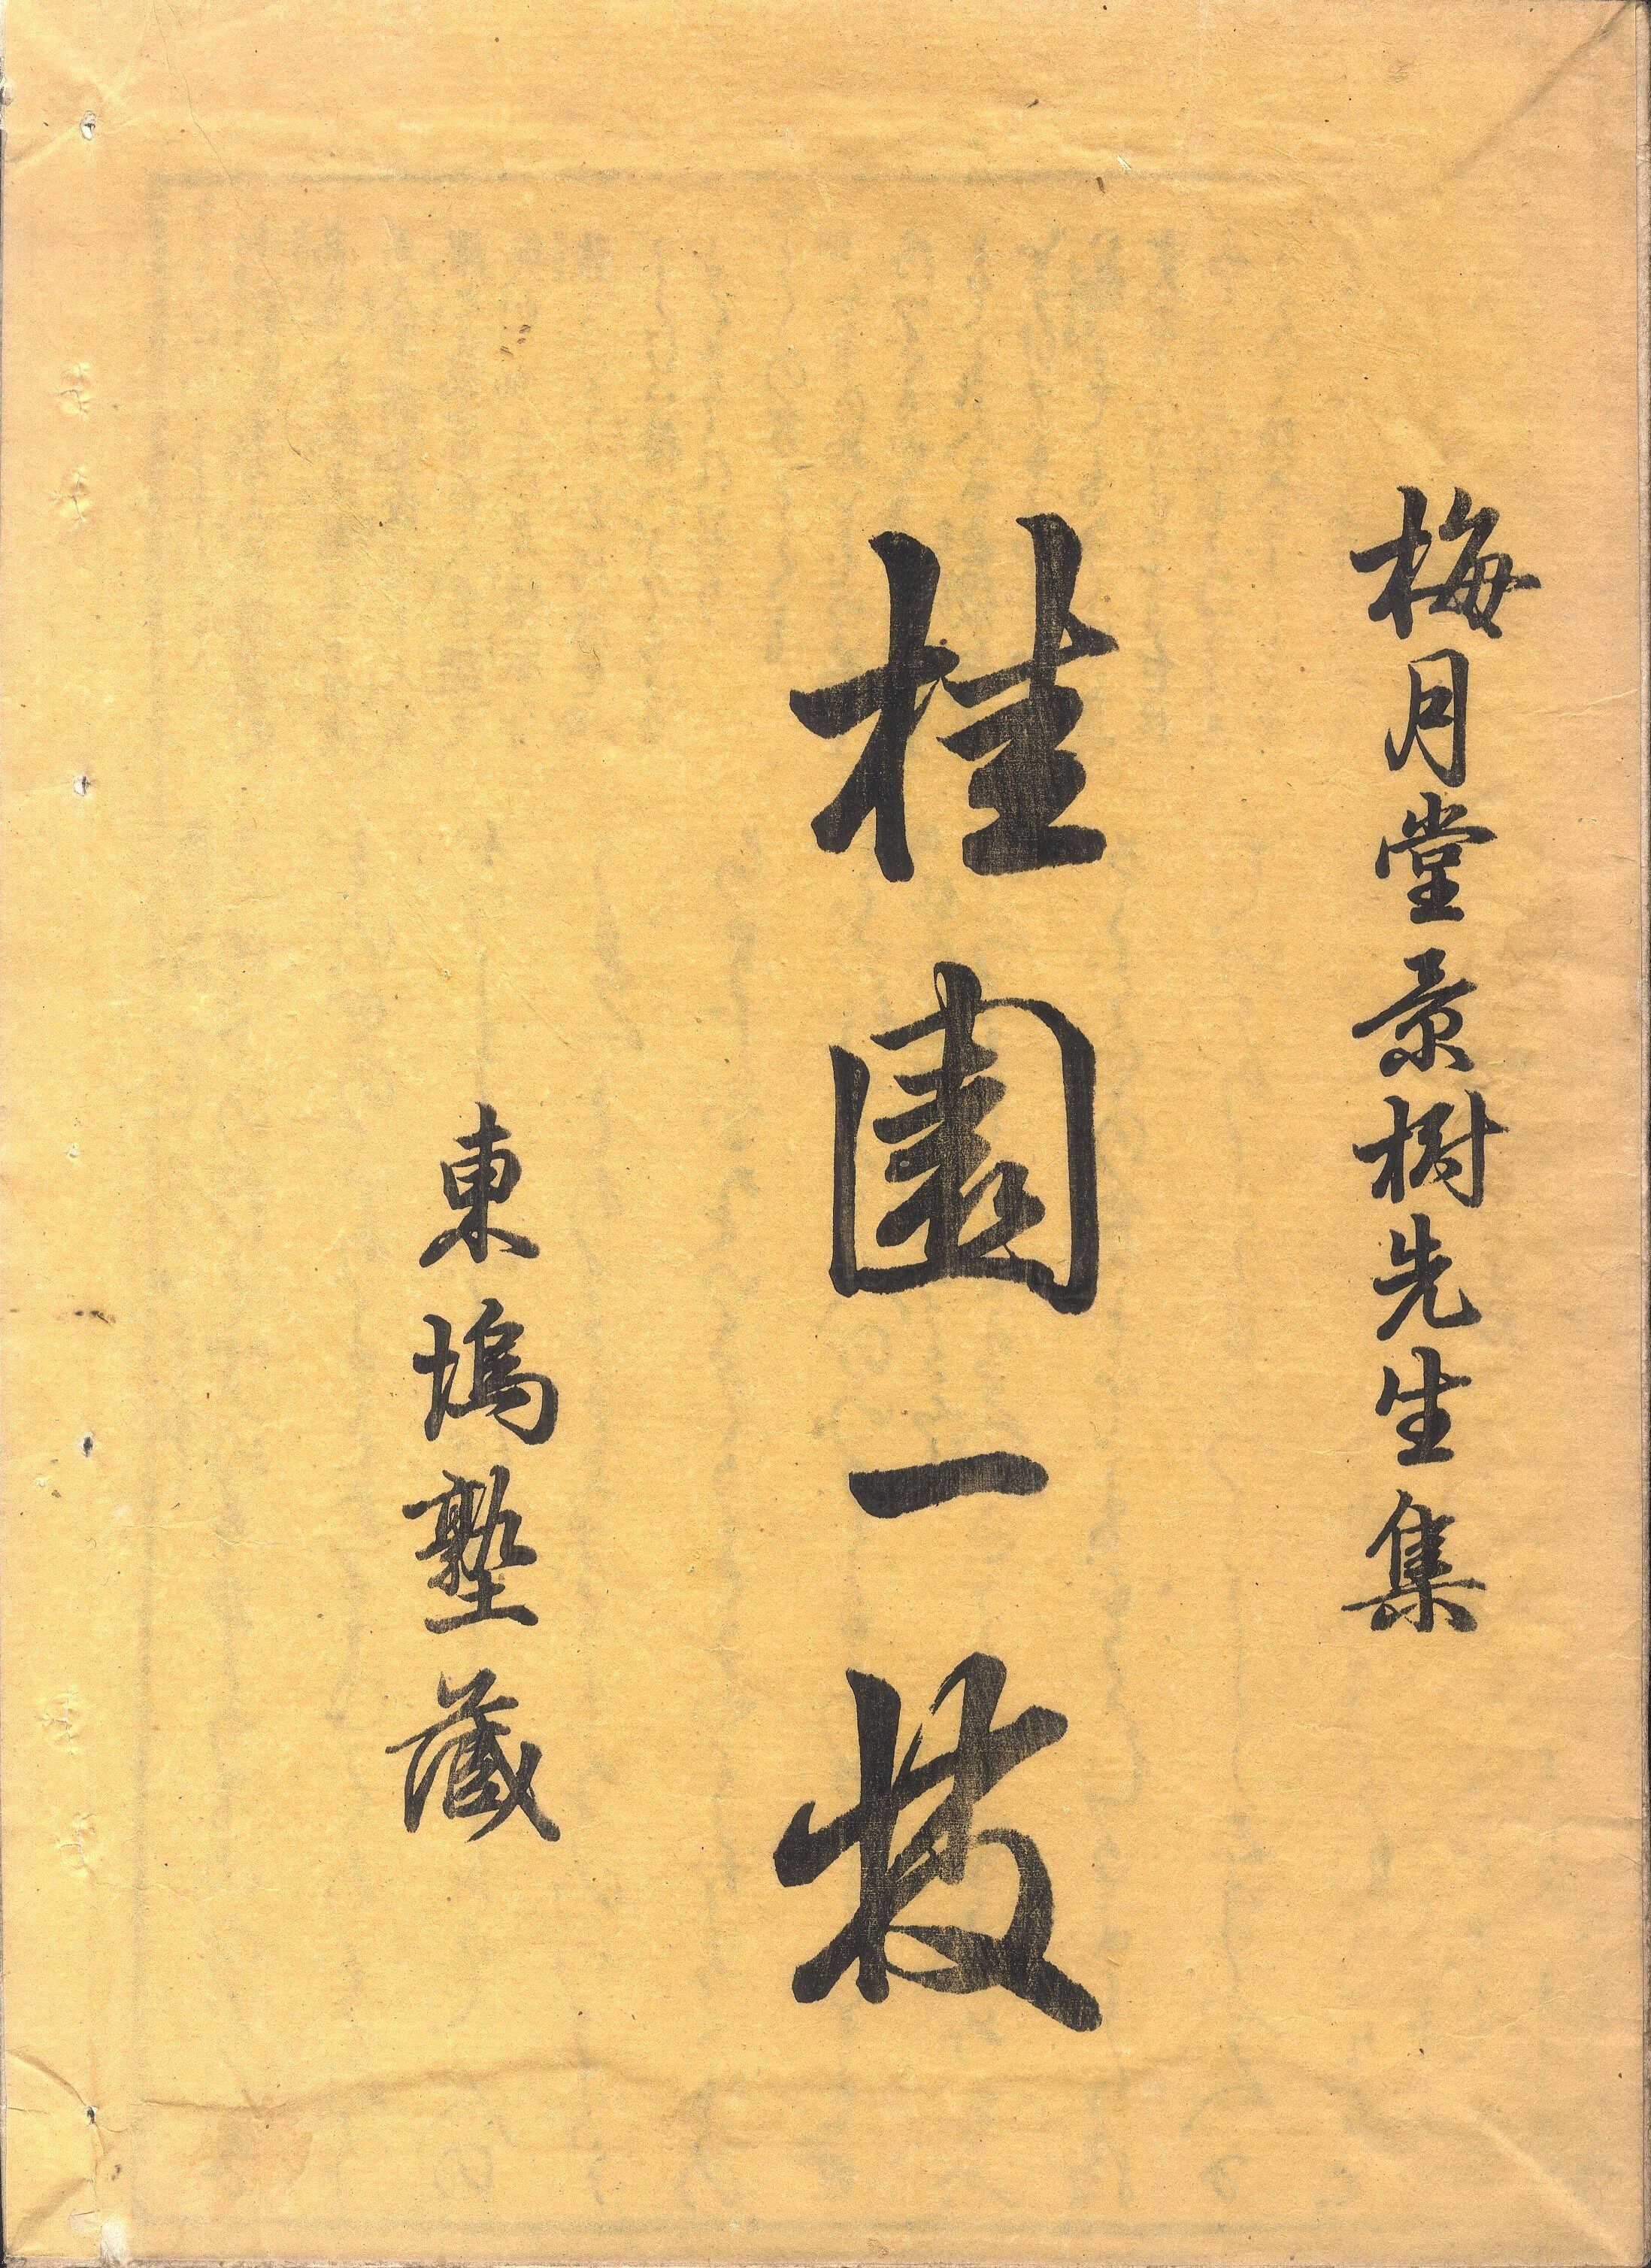 梅月堂景樹先生集
桂園一枝
東塢塾蔵